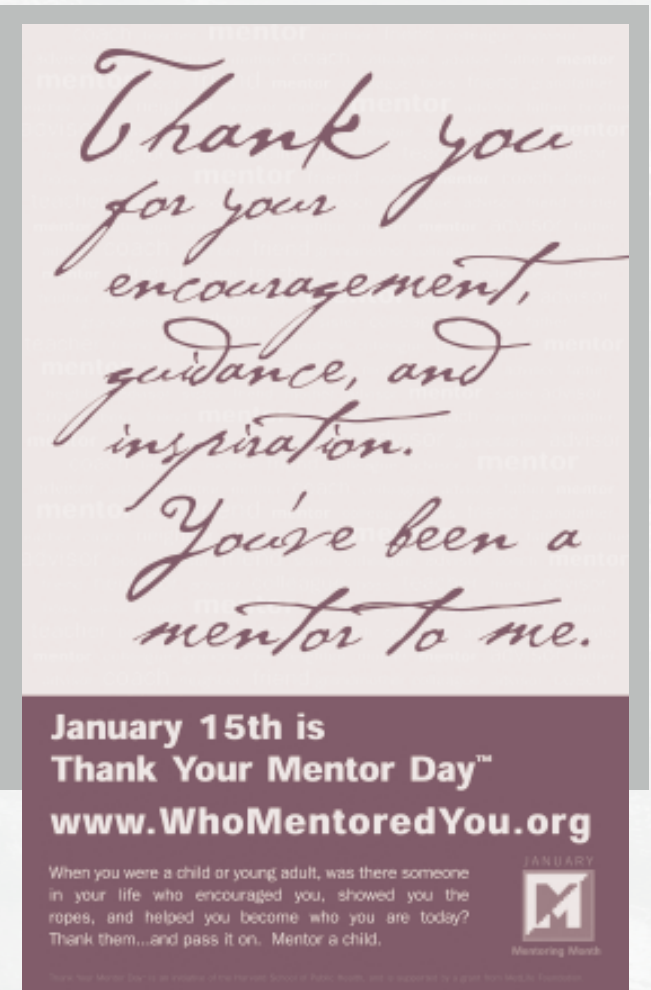 Thank you
for your
encouragement,
guidance, and
inspiration.
You've been a
mentor to me.
January 15th is
Thank Your Mentor Day™
www.WhoMentoredYou.org
When you were a child or young adult, was there someone
in your life who encouraged you, showed you the
ropes, and helped you become who you are today?
Thank them...and pass it on. Mentor a child.
JANUARY
M
Mentoring Month